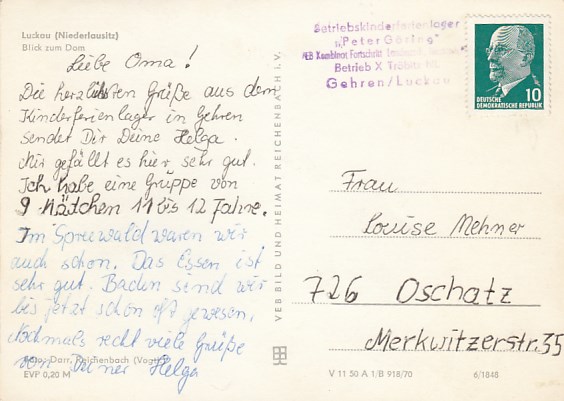 Luckau (Niederlausitz)
Blick zum Dom
Liebe Oma!
Die herzlichsten Grüße aus dem
Kinderferienlager in Gehren
sendet Dir Deine Helga.
Mir gefällt es hier sehr gut.
Ich habe eine Gruppe von
9 Mädchen 11 bis 12 Jahre.
Im Spreewald waren wir
auch schon. Das Essen ist
sehr gut. Baden sind wir
bis jetzt schon oft gewesen.
Nochmals recht viele Grüße
von Deiner Helga
Foto: Darr, Reichenbach (Vogtl.)
EVP 0,20 M
VEB BILD UND HEIMAT REICHENBACH I. V.
Betriebskinderferienlager
"Peter Göring"
VEB Kombinat Fortschritt
Betrieb X
Gehren/Luckau
10
DEUTSCHE
DEMOKRATISCHE REPUBLIK
Frau
Louise Mehner
726 Oschatz
Merkwitzerstr. 35
V 11 50 A 1/B 918/70
6/1848